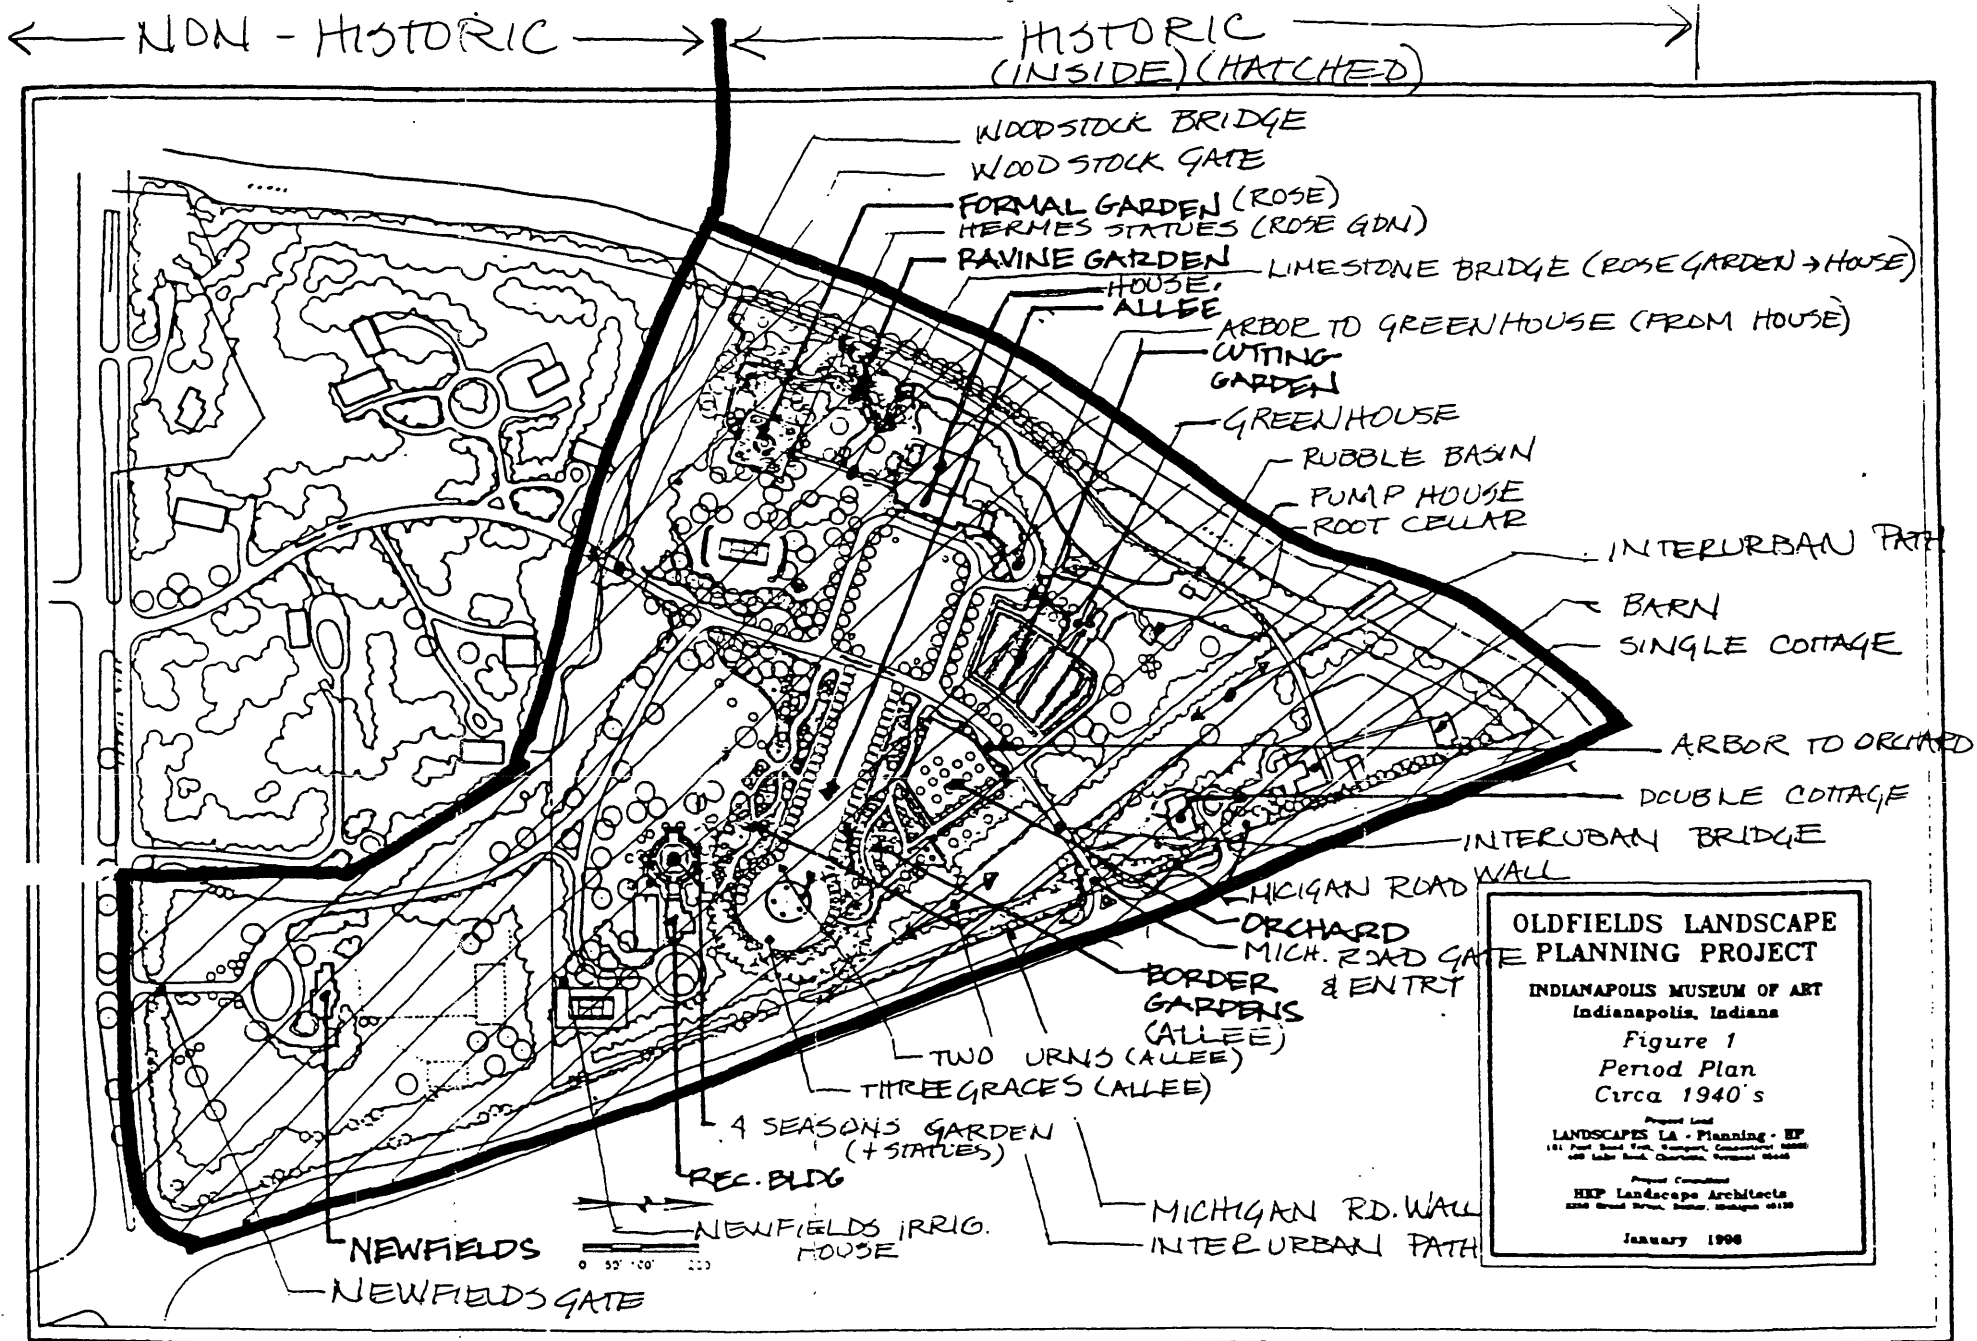 NON-HISTORIC
HISTORIC
(INSIDE) (HATCHED)
WOODSTOCK BRIDGE
WOODSTOCK GATE
FORMAL GARDEN (ROSE)
HERMES STATUES (ROSE GDN)
RAVINE GARDEN
LIMESTONE BRIDGE (ROSE GARDEN → HOUSE)
HOUSE
ALLEE
ARBOR TO GREENHOUSE (FROM HOUSE)
CUTTING
GARDEN
GREENHOUSE
RUBBLE BASIN
PUMP HOUSE
ROOT CELLAR
INTERURBAN PATH
BARN
SINGLE COTTAGE
ARBOR TO ORCHARD
DOUBLE COTTAGE
INTERUBAN BRIDGE
MICIGAN ROAD WALL
ORCHARD
MICH. ROAD GATE
& ENTRY
BORDER
GARDENS
(ALLEE)
TWO URNS (ALLEE)
THREE GRACES (ALLEE)
4 SEASONS GARDEN
(+ STATUES)
REC. BLDG
MICHIGAN RD. WALL
INTERURBAN PATH
NEWFIELDS IRRIG.
HOUSE
NEWFIELDS
NEWFIELDS GATE
N
0 50' 100'
OLDFIELDS LANDSCAPE
PLANNING PROJECT
INDIANAPOLIS MUSEUM OF ART
Indianapolis, Indiana
Figure 1
Period Plan
Circa 1940's
Project Lead
LANDSCAPES LA · Planning · HP
Project Consultant
HKP Landscape Architects
January 1996